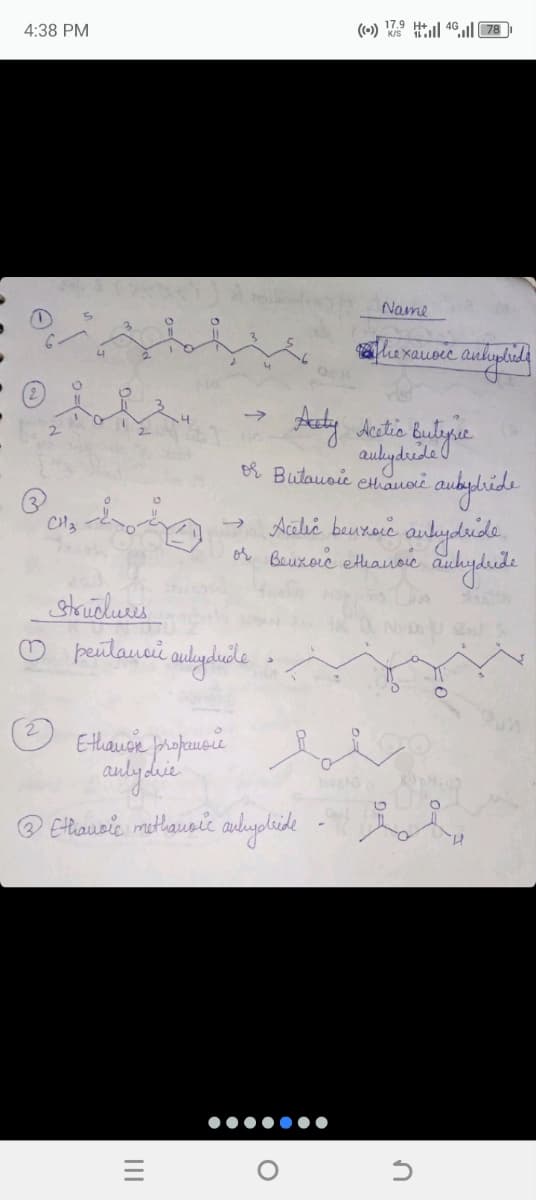 4:38 PM
17.9 K/S H+ 4G 78
Name
① hexanoic anhydride
6 5 4 3 2 1 O O O 1 2 3 4 5 6
② O O O 2 1 1 2 3 4 → Acetic Butyric
anhydride
or Butanoic ethanoic anhydride
③ CH3 O O O → Acetic benzoic anhydride
or Benzoic ethanoic anhydride
Structures
① pentanoic anhydride - O O O
② Ethanoic propanoic O O O
anhydrie
③ Ethanoic methanoic anhydride - O O O H